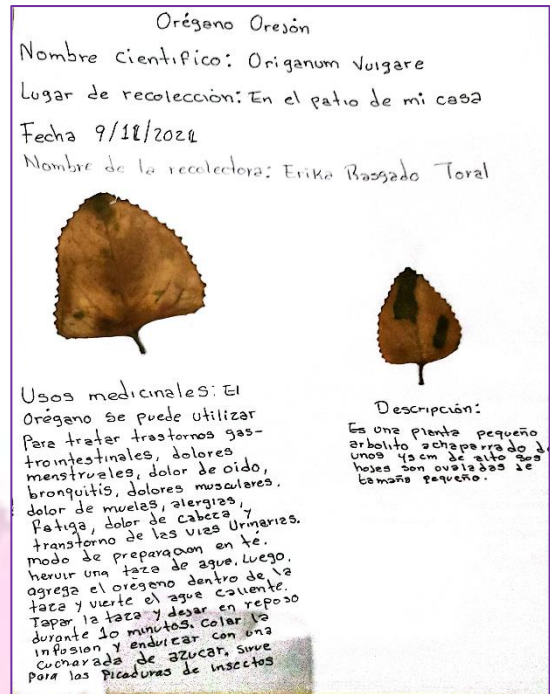 Orégano Orejón
Nombre científico: Origanum Vulgare
Lugar de recolección: En el patio de mi casa
Fecha 9/11/2021
Nombre de la recolectora: Erika Rasgado Toral
Usos medicinales: El
Orégano se puede utilizar
Para tratar trastornos gas-
trointestinales, dolores
menstruales, dolor de oido,
bronquitis, dolores musculares,
dolor de muelas, alergias,
Fatiga, dolor de cabeza y
transtorno de las vias Urinarias.
modo de preparacion en té.
hervir una taza de agua. Luego,
agrega el orégano dentro de la
taza y vierte el agua caliente.
Tapar la taza y dejar en reposo
durante 10 minutos. Colar la
infosion y endulzar con una
cucharada de azucar. Sirve
Para las Picaduras de insectos
Descripción:
Es una planta pequeño
arbolito achaparrado de
unos 45cm de alto sus
hojas son ovaladas de
tamaño pequeño.